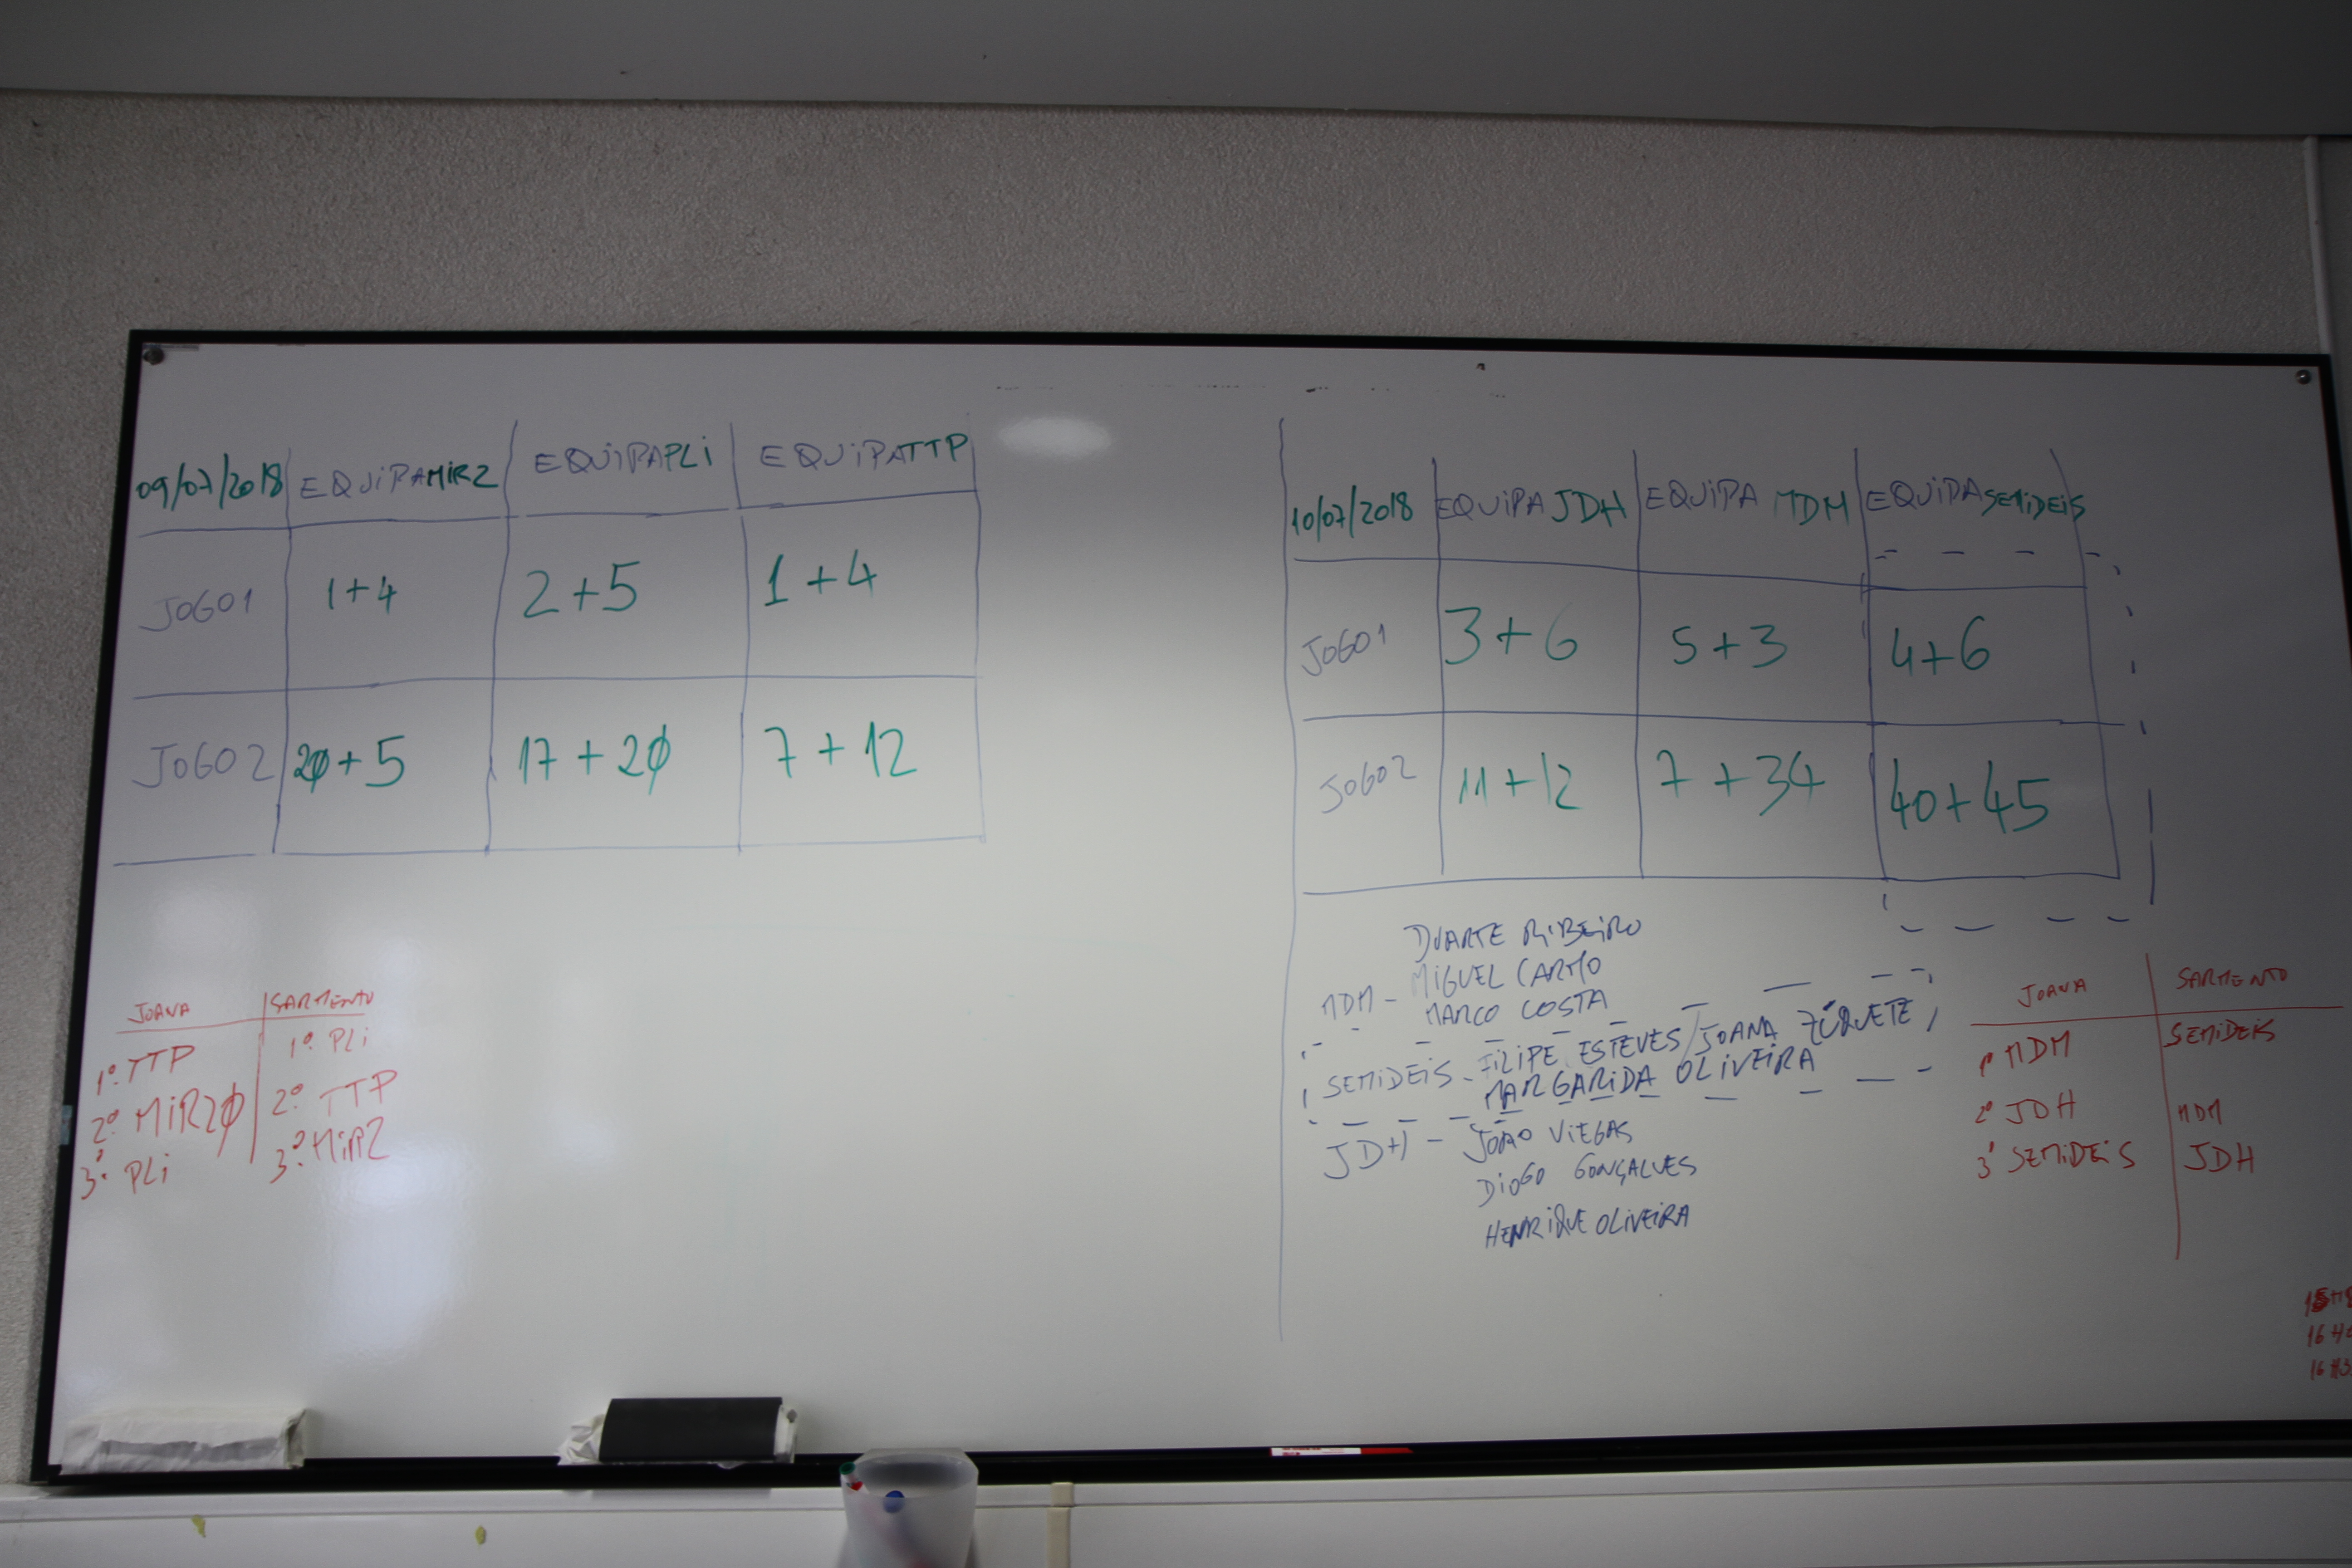 09/07/2018 EQUIPAMIRZ EQUIPAPLI EQUIPATTP
JOGO1 1+4 2+5 1+4
JOGO2 20+5 17+20 7+12
JOANA SARMENTO
1º TTP 1º PLI
2º MIR20 2º TTP
3º PLI 3º MIRZ
10/07/2018 EQUIPA JDH EQUIPA MDM EQUIPA SEMIDEIS
JOGO1 3+6 5+3 4+6
JOGO2 11+12 7+34 40+45
DUARTE RIBEIRO
MDM - MIGUEL CARMO
MARCO COSTA
SEMIDEIS - FILIPE ESTEVES / JOANA ZÚQUETE,
MARGARIDA OLIVEIRA
JDH - JOÃO VIEGAS
DIOGO GONÇALVES
HENRIQUE OLIVEIRA
JOANA SARMENTO
1º MDM SEMIDEIS
2º JDH MDM
3º SEMIDEIS JDH